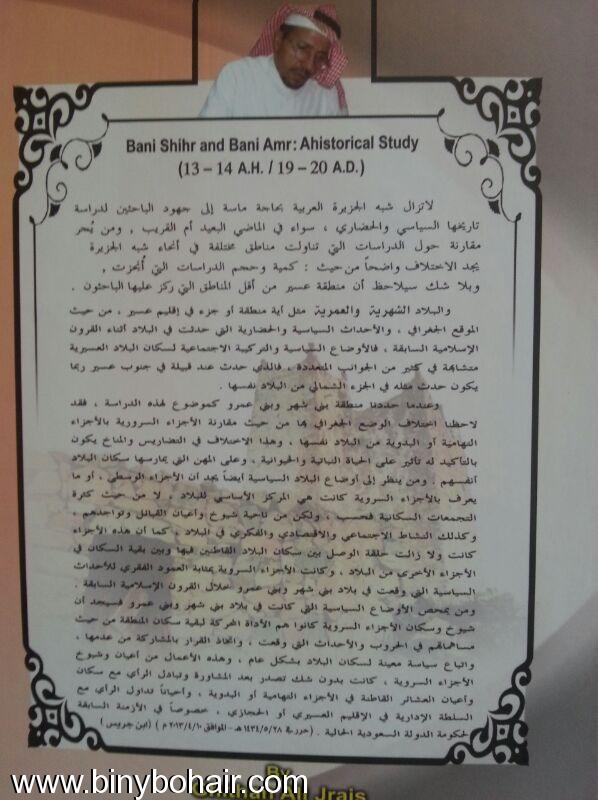 Bani Shihr and Bani Amr: Ahistorical Study
(13 – 14 A.H. / 19 – 20 A.D.)
لاتزال شبه الجزيرة العربية بحاجة ماسة إلى جهود الباحثين لدراسة
تاريخها السياسي والحضاري ، سواء في الماضي البعيد أم القريب , ومن يُجر
مقارنة حول الدراسات التي تناولت مناطق مختلفة في أنحاء شبه الجزيرة
يجد الاختلاف واضحاً من حيث : كمية وحجم الدراسات التي أُنجزت ,
وبلا شك سيلاحظ أن منطقة عسير من أقل المناطق التي ركز عليها الباحثون .
والبلاد الشهرية والعمرية مثل أية منطقة أو جزء في إقليم عسير ، من حيث
الموقع الجغرافي ، والأحداث السياسية والحضارية التي حدثت في البلاد أثناء القرون
الإسلامية السابقة ، فالأوضاع السياسية والتركيبة الاجتماعية لسكان البلاد العسيرية
متشابهة في كثير من الجوانب المتعددة ، فالذي حدث عند قبيلة في جنوب عسير ربما
يكون حدث مثله في الجزء الشمالي من البلاد نفسها .
وعندما حددنا منطقة بني شهر وبني عمرو كموضوع لهذه الدراسة ، فقد
لاحظنا اختلاف الوضع الجغرافي بها من حيث مقارنة الأجزاء السروية بالأجزاء
التهامية أو البدوية من البلاد نفسها ، وهذا الاختلاف في التضاريس والمناخ يكون
بالتأكيد له تأثير على الحياة النباتية والحيوانية ، وعلى المهن التي يمارسها سكان البلاد
أنفسهم . ومن ينظر إلى أوضاع البلاد السياسية أيضاً يجد أن الأجزاء الوسطى ، أو ما
يعرف بالأجزاء السروية كانت هي المركز الأساسي للبلاد ، لا من حيث كثرة
التجمعات السكانية فحسب ، ولكن من ناحية شيوخ وأعيان القبائل وتواجدهم ،
وكذلك النشاط الاجتماعي والاقتصادي والفكري في البلاد ، كما أن هذه الأجزاء
كانت ولا زالت حلقة الوصل بين سكان البلاد القاطنين فيها وبين بقية السكان في
الأجزاء الأخرى من البلاد ، وكانت الأجزاء السروية بمثابة العمود الفقري للأحداث
السياسية التي وقعت في بلاد بني شهر وبني عمرو خلال القرون الإسلامية السابقة .
ومن يمحص الأوضاع السياسية التي كانت في بلاد بني شهر وبني عمرو فسيجد أن
شيوخ وسكان الأجزاء السروية كانوا هم الأداة المحركة لبقية سكان المنطقة من حيث
مساهماتهم في الحروب والأحداث التي وقعت ، واتخاذ القرار بالمشاركة من عدمها ،
واتباع سياسة معينة لسكان البلاد بشكل عام ، وهذه الأعمال من أعيان وشيوخ
الأجزاء السروية ، كانت بدون شك تصدر بعد المشاورة وتبادل الرأي مع سكان
وأعيان العشائر القاطنة في الأجزاء التهامية أو البدوية ، وأحياناً تداول الرأي مع
السلطة الإدارية في الإقليم العسيري أو الحجازي ، خصوصاً في الأزمنة السابقة
لحكومة الدولة السعودية الحالية . (حرر في ١٤٣٤/٥/٢٨هـ - الموافق ٢٠١٣/٤/١٠ م ) (ابن جريس )
By
Ghithan Ali Jrais
www.binybohair.com